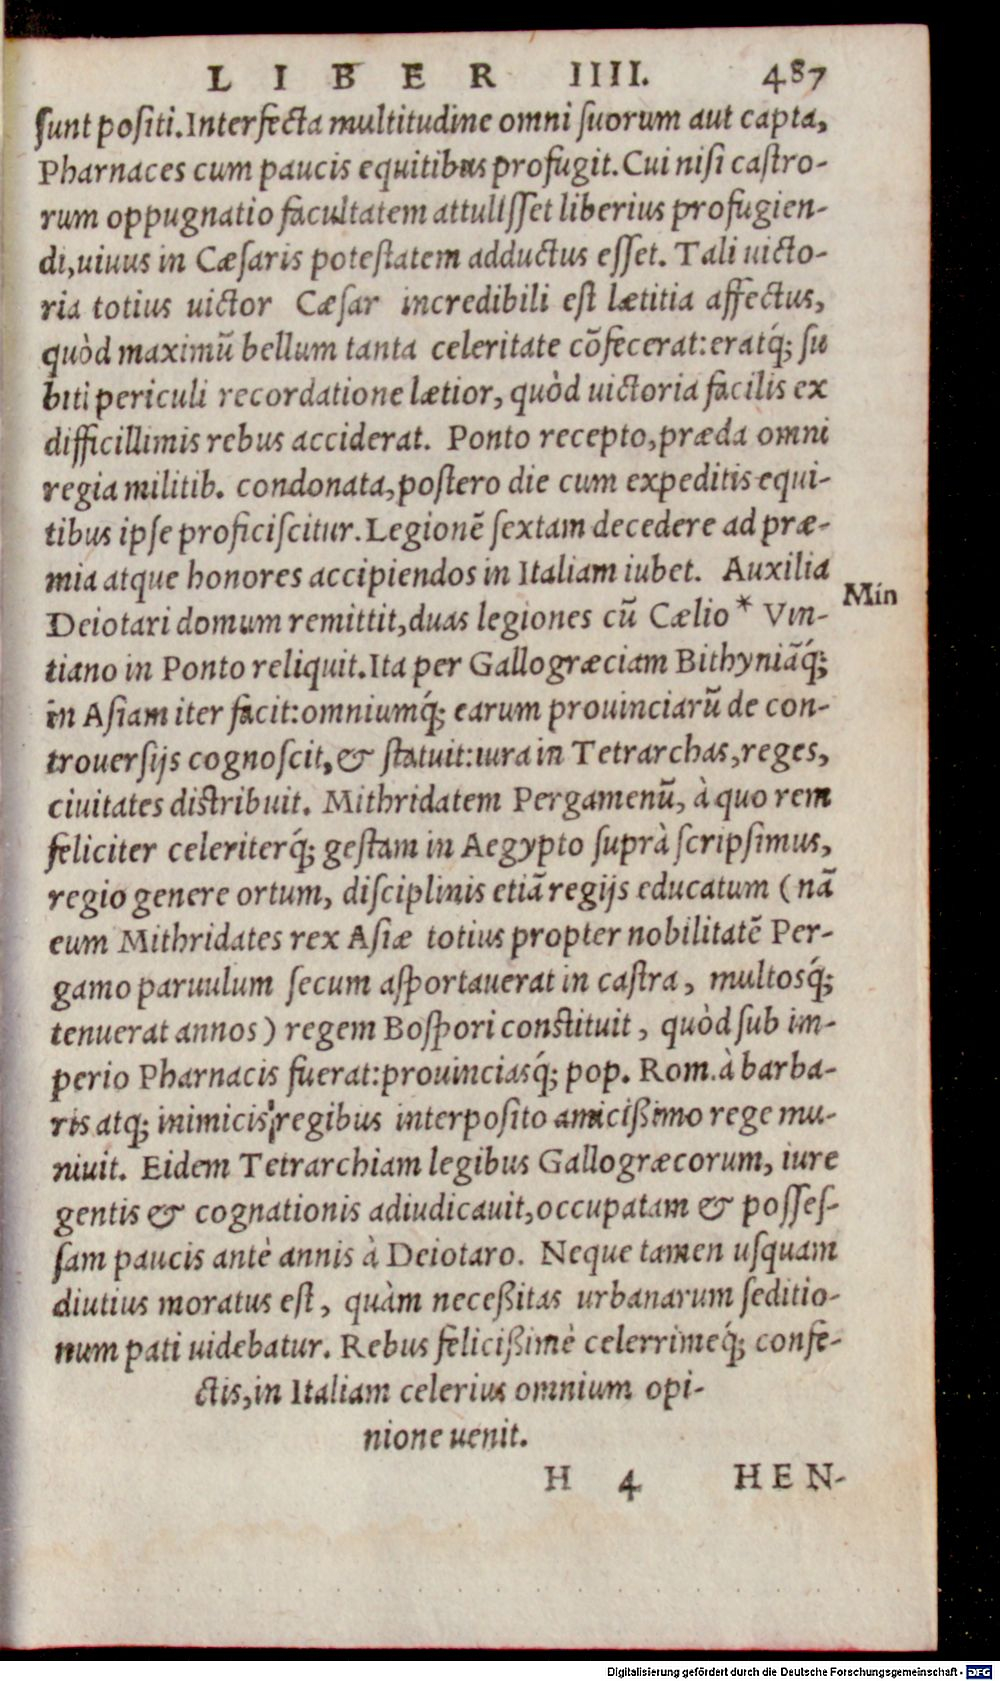 LIBER IIII. 487
ſunt poſiti. Interfecta multitudine omni ſuorum aut capta,
Pharnaces cum paucis equitibus profugit. Cui niſi caſtro-
rum oppugnatio facultatem attuliſſet liberius profugien-
di, uiuus in Cæſaris poteſtatem adductus eſſet. Tali uicto-
ria totius uictor Cæſar incredibili eſt lætitia affectus,
quòd maximũ bellum tanta celeritate cõfecerat: eratq́; ſu
biti periculi recordatione lætior, quòd uictoria facilis ex
difficillimis rebus acciderat. Ponto recepto, præda omni
regia militib. condonata, poſtero die cum expeditis equi-
tibus ipſe proficiſcitur. Legionẽ ſextam decedere ad præ-
mia atque honores accipiendos in Italiam iubet. Auxilia
Deiotari domum remittit, duas legiones cũ Cælio * Vin-
Min
tiano in Ponto reliquit. Ita per Gallogræciam Bithyniãq́;
in Aſiam iter facit: omniumq́; earum prouinciarũ de con-
trouerſijs cognoſcit, & ſtatuit: iura in Tetrarchas, reges,
ciuitates diſtribuit. Mithridatem Pergamenũ, à quo rem
feliciter celeriterq́; geſtam in Aegypto ſuprà ſcripſimus,
regio genere ortum, diſciplinis etiã regijs educatum (nã
eum Mithridates rex Aſiæ totius propter nobilitatẽ Per-
gamo paruulum ſecum aſportauerat in caſtra, multosq́;
tenuerat annos) regem Boſpori conſtituit, quòd ſub im-
perio Pharnacis fuerat: prouinciasq́; pop. Rom. à barba-
ris atq; inimicis regibus interpoſito amicißimo rege mu-
niuit. Eidem Tetrarchiam legibus Gallogræcorum, iure
gentis & cognationis adiudicauit, occupatam & poſſeſ-
ſam paucis antè annis à Deiotaro. Neque tamen uſquam
diutius moratus eſt, quàm neceßitas urbanarum ſeditio-
num pati uidebatur. Rebus felicißimè celerrimeq́; confe-
ctis, in Italiam celerius omnium opi-
nione uenit.
H 4 HEN-
Digitalisierung gefördert durch die Deutsche Forschungsgemeinschaft - DFG